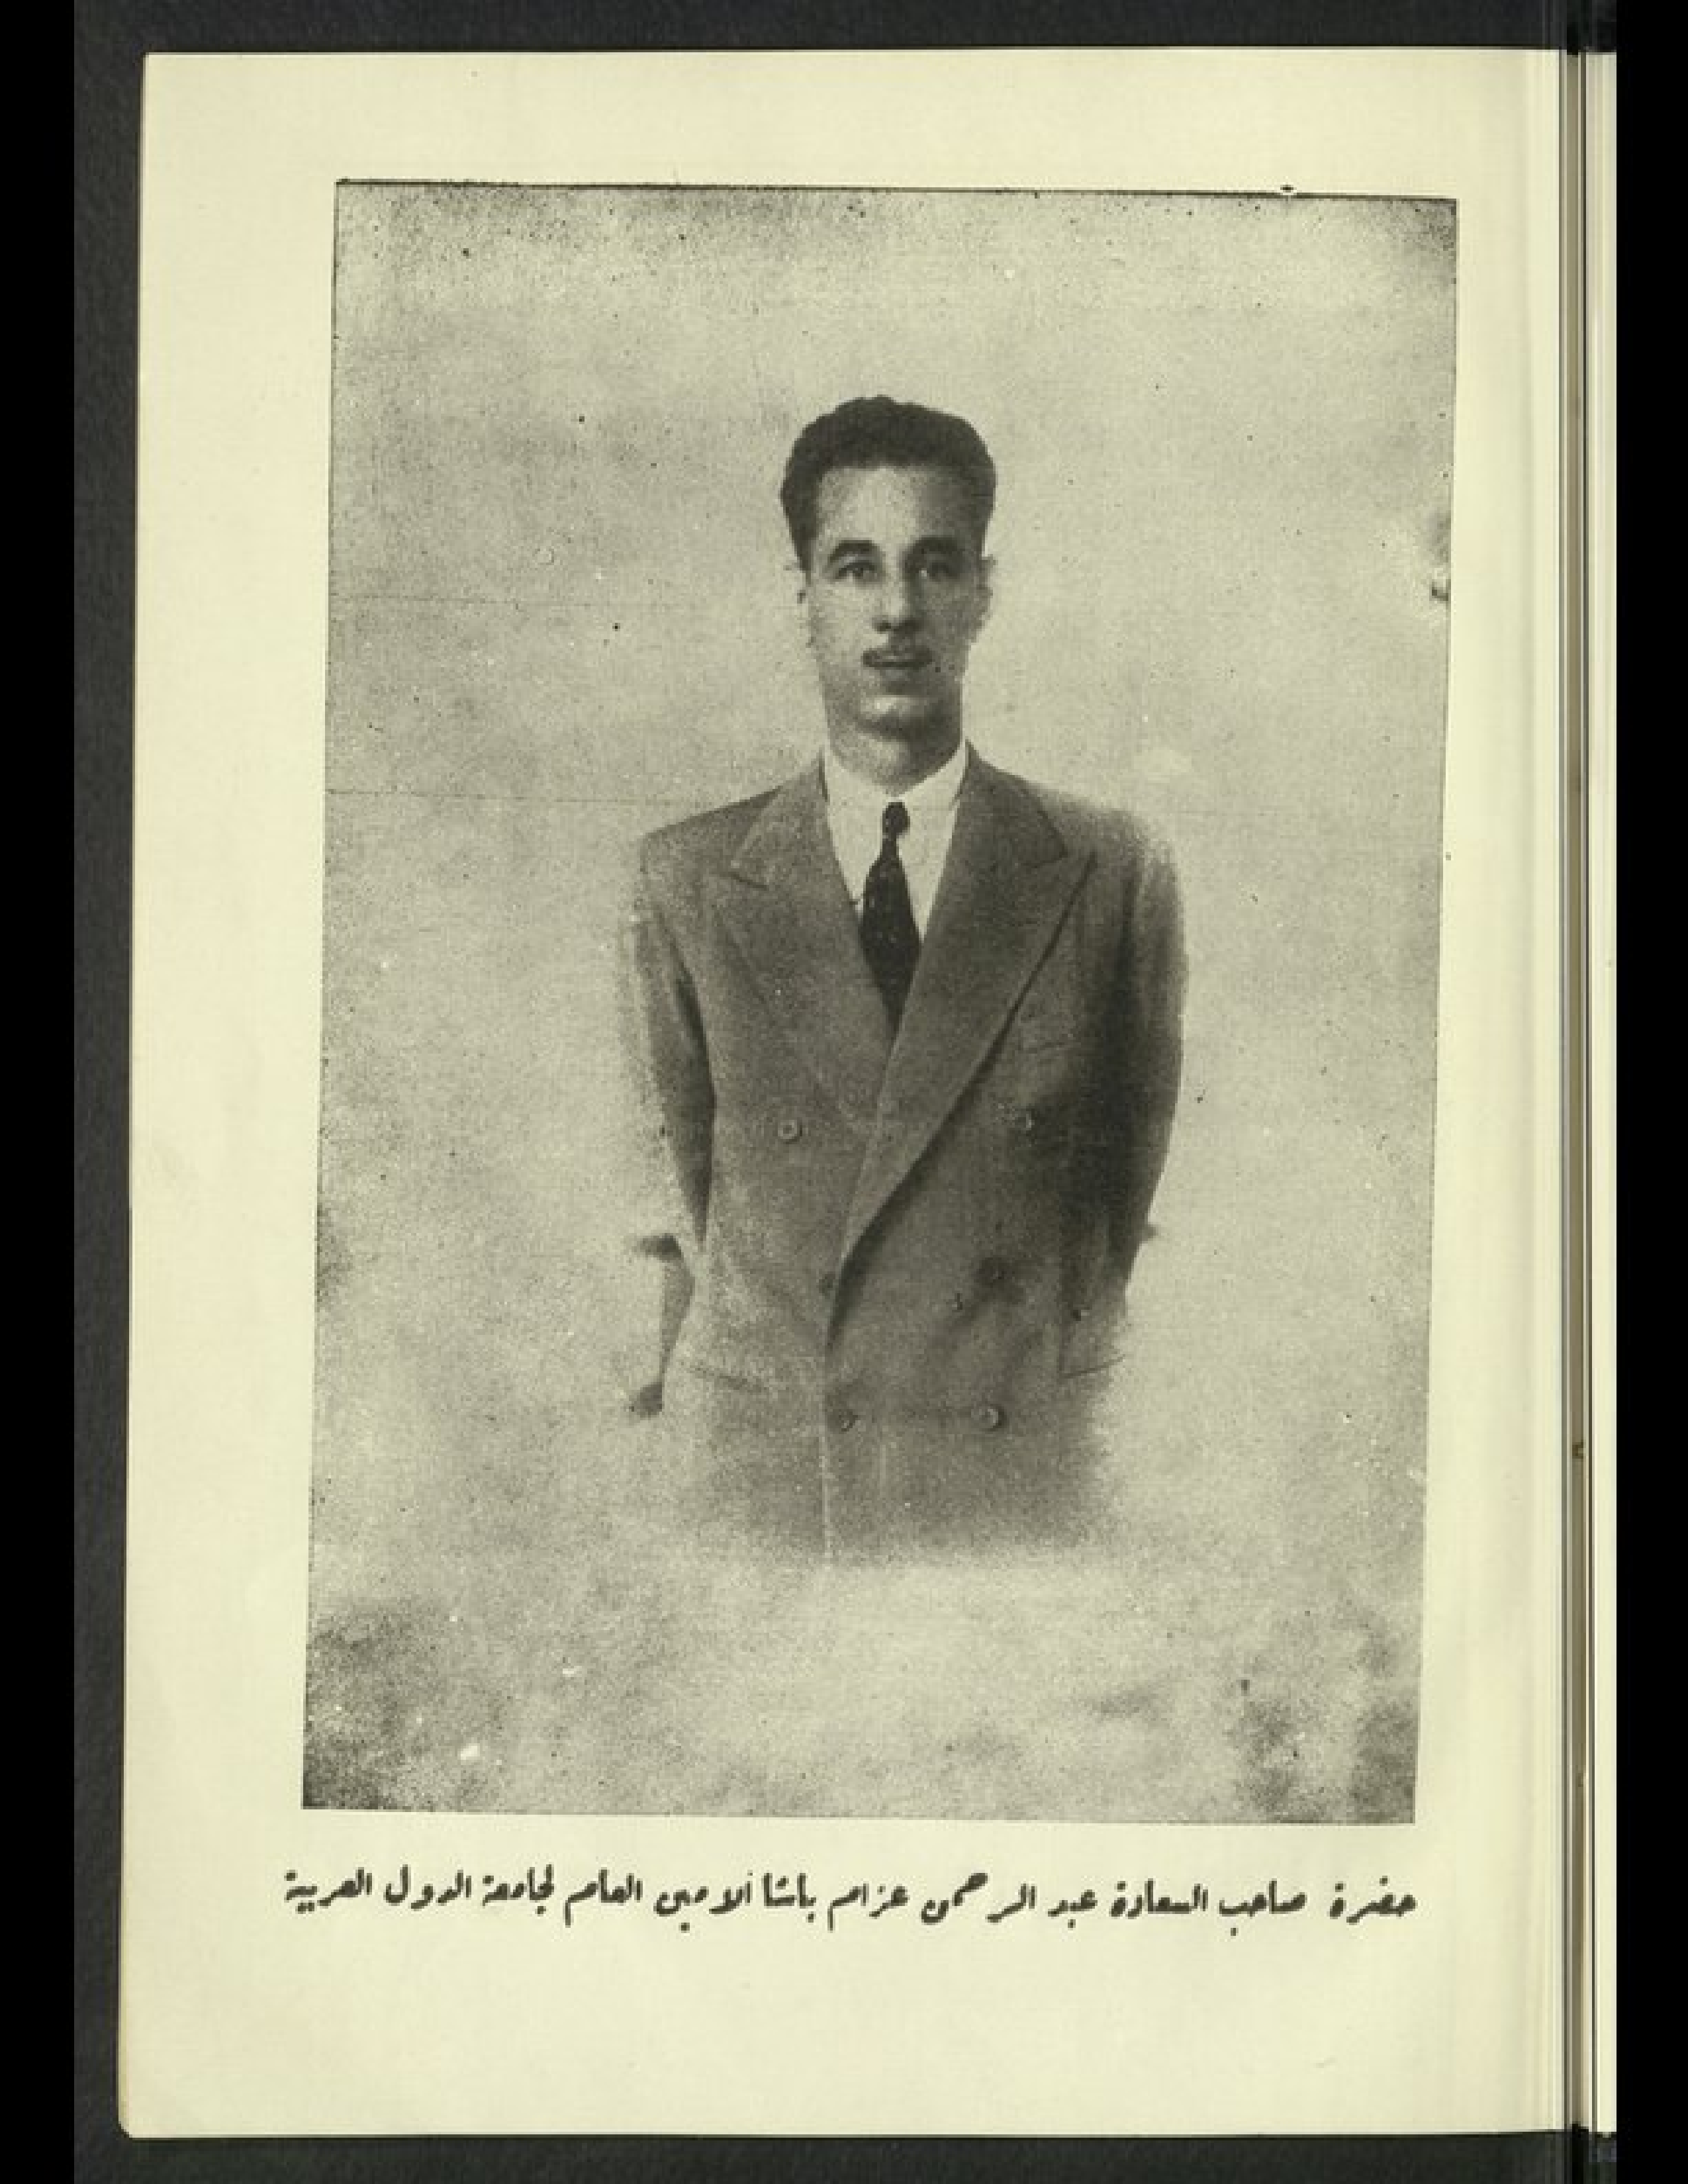 حضرة صاحب السعادة عبد الرحمن عزام باشا ألامين العام لجامعة الدول العربية